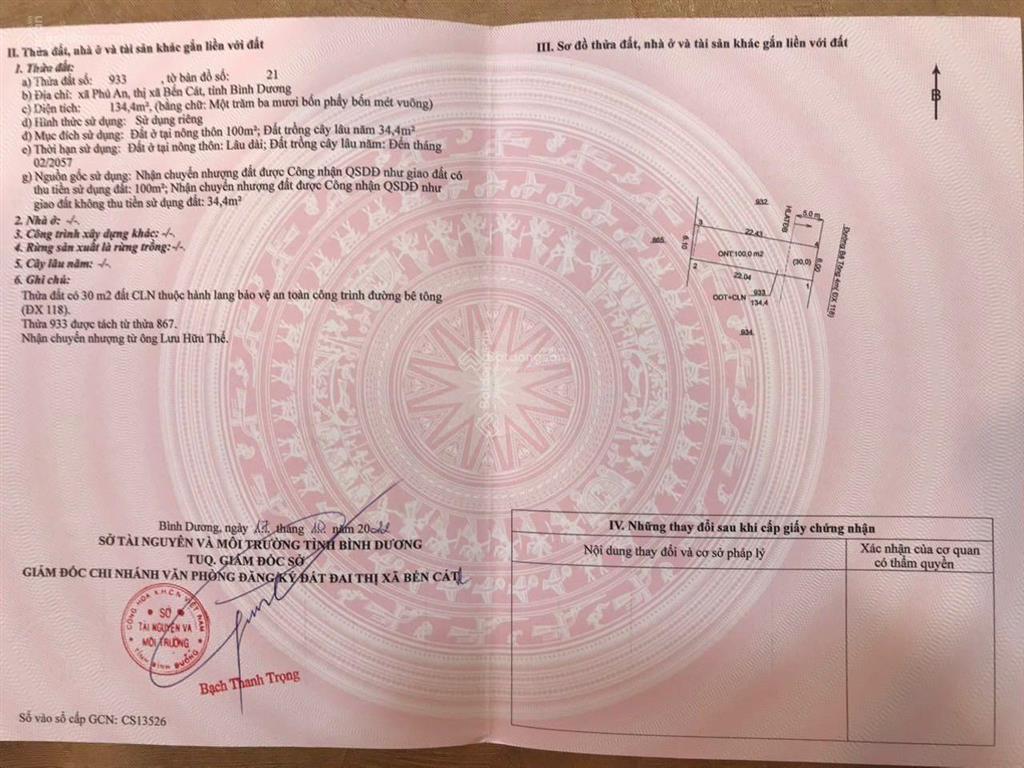 II. Thửa đất, nhà ở và tài sản khác gắn liền với đất
1. Thửa đất:
a) Thửa đất số: 933 , tờ bản đồ số: 21
b) Địa chỉ: xã Phú An, thị xã Bến Cát, tỉnh Bình Dương
c) Diện tích: 134,4m², (bằng chữ: Một trăm ba mươi bốn phẩy bốn mét vuông)
d) Hình thức sử dụng: Sử dụng riêng
đ) Mục đích sử dụng: Đất ở tại nông thôn 100m²; Đất trồng cây lâu năm 34,4m²
e) Thời hạn sử dụng: Đất ở tại nông thôn: Lâu dài; Đất trồng cây lâu năm: Đến tháng
02/2057
g) Nguồn gốc sử dụng: Nhận chuyển nhượng đất được Công nhận QSDĐ như giao đất có
thu tiền sử dụng đất: 100m²; Nhận chuyển nhượng đất được Công nhận QSDĐ như
giao đất không thu tiền sử dụng đất: 34,4m²
2. Nhà ở: -/-.
3. Công trình xây dựng khác: -/-.
4. Rừng sản xuất là rừng trồng:-/-.
5. Cây lâu năm: -/-
6. Ghi chú:
Thửa đất có 30 m2 đất CLN thuộc hành lang bảo vệ an toàn công trình đường bê tông
(ĐX 118).
Thửa 933 được tách từ thửa 867.
Nhận chuyển nhượng từ ông Lưu Hữu Thể.
Bình Dương, ngày 17 tháng năm 2022
SỞ TÀI NGUYÊN VÀ MÔI TRƯỜNG TỈNH BÌNH DƯƠNG
TUQ. GIÁM ĐỐC SỞ
GIÁM ĐỐC CHI NHÁNH VĂN PHÒNG ĐĂNG KÝ ĐẤT ĐAI THỊ XÃ BẾN CÁT
CỘNG HÒA X.H.C.N VIỆT NAM
SỞ
TÀI NGUYÊN VÀ
MÔI TRƯỜNG
TỈNH BÌNH DƯƠNG
Bạch Thanh Trọng
Số vào sổ cấp GCN: CS13526
III. Sơ đồ thửa đất, nhà ở và tài sản khác gắn liền với đất
B
932
HLATĐB
5.0 m
3
22.43
4
865
6.10
ONT100,0 m2
(30,0)
6.00
2
22.04
1
ODT+CLN
933
134,4
934
Đường Bê Tông 4m( ĐX 118)
Batdongsan
IV. Những thay đổi sau khi cấp giấy chứng nhận
Nội dung thay đổi và cơ sở pháp lý
Xác nhận của cơ quan
có thẩm quyền